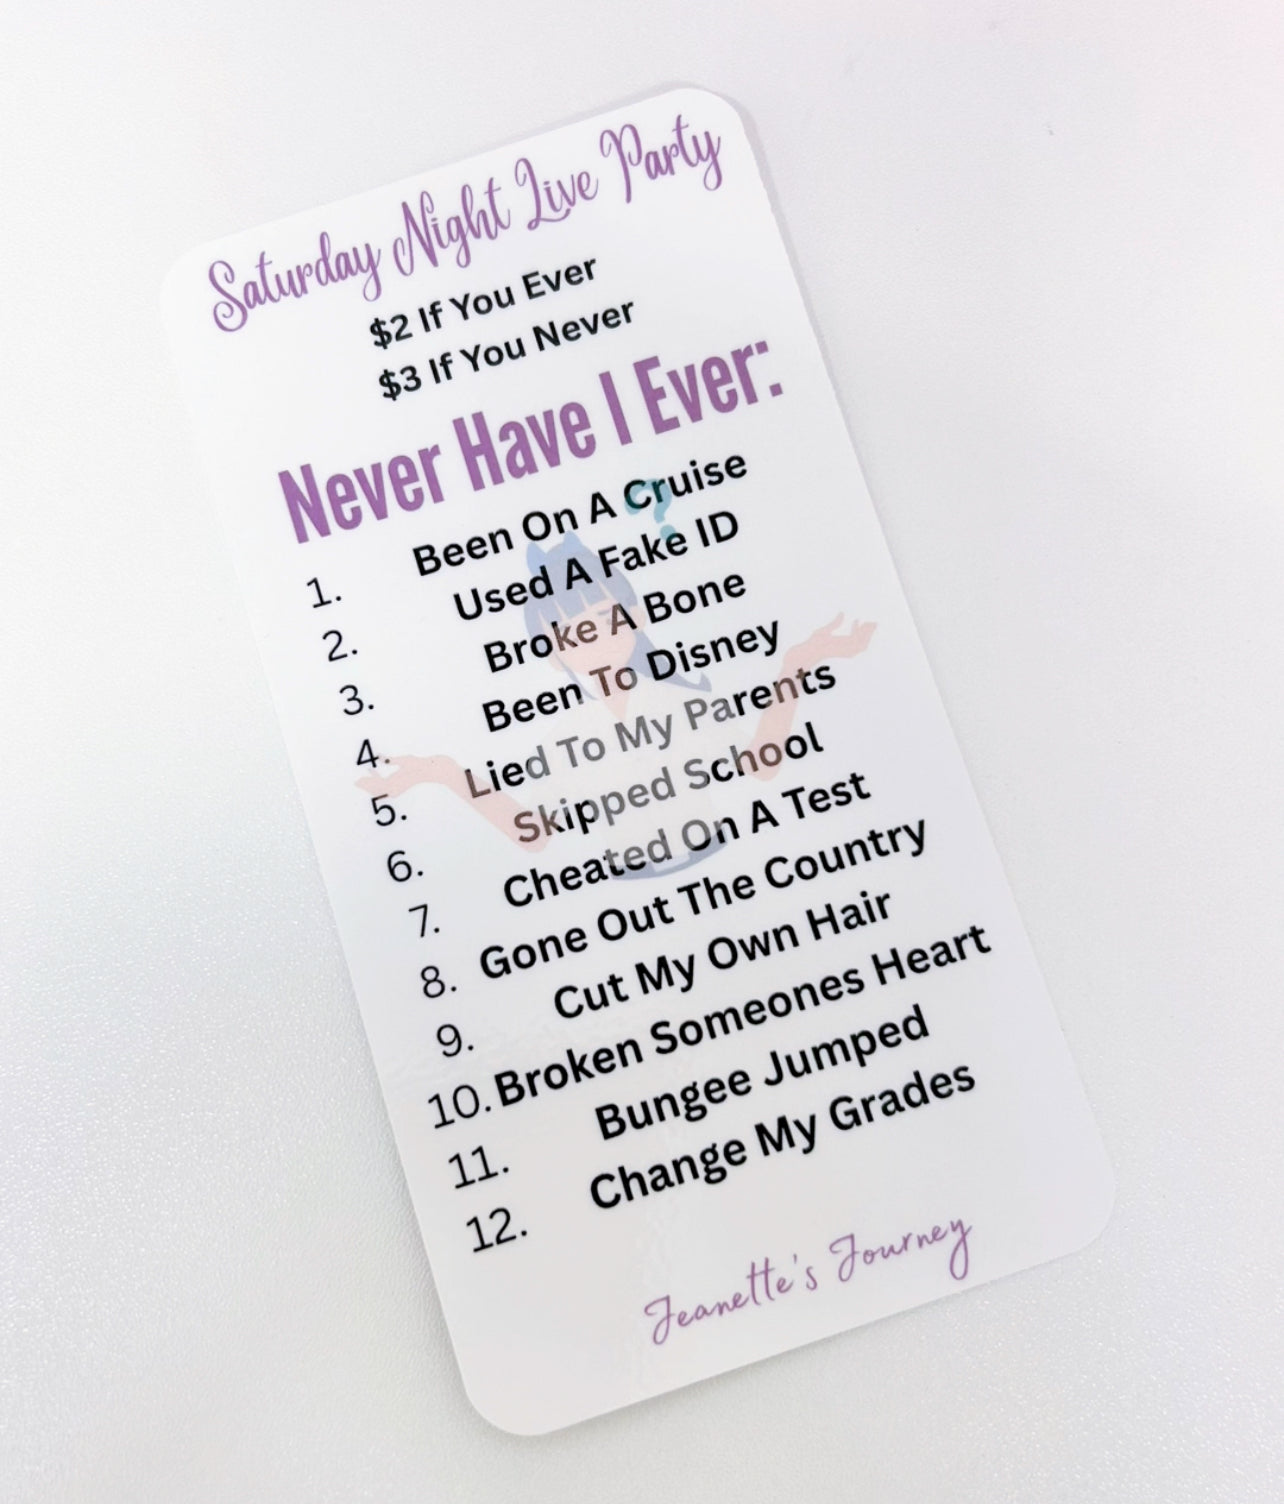 Saturday Night Live Party
$2 If You Ever
$3 If You Never
Never Have I Ever:
1. Been On A Cruise
2. Used A Fake ID
3. Broke A Bone
4. Been To Disney
5. Lied To My Parents
6. Skipped School
7. Cheated On A Test
8. Gone Out The Country
9. Cut My Own Hair
10. Broken Someones Heart
11. Bungee Jumped
12. Change My Grades
Jeanette's Journey